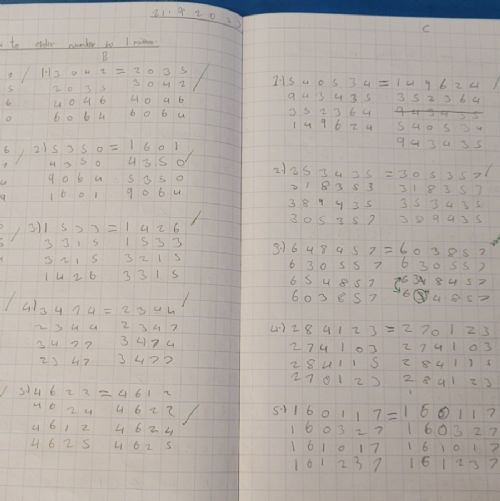 21.9.2023
to order number to 1 million
B
1.) 3042 = 2035
2035 3042
4046 4046
6064 6064
2) 5350 = 1601
4350 4350
9064 5350
1601 9064
3) 1533 = 1426
3315 1533
3215 3215
1426 3315
4) 3474 = 2344
2344 2347
3477 3474
2347 3477
5) 4623 = 4612
4624 4622
4612 4624
4625 4625
C
1.) 540534 = 149624
943435 352364
352364
149624 540534
943435
2.) 353435 = 305357
318353 318357
389435 353435
305357 389435
3.) 648457 = 603857
630557 630557
654857 648457
603857 654857
4.) 284123 = 270123
274103 274103
284115 284115
270123 284123
5.) 160117 = 160117
160327 160327
161017 161017
161237 161237